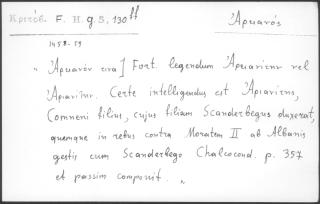 Κριτόβ. F. H. g. 5, 130 ff
Ἀριανός
1458-59
„ Ἀριανόν τινα] Fort. legendum Ἀριανίτην vel
Ἀριανῖτιν. Certe intelligendus est Ἀριανίτης,
Comneni filius, cujus filiam Scanderbegus duxerat,
quemque in rebus contra Moratem II ab Albanis
gestis cum Scanderbego Chalcocond. p. 357
et passim componit. „